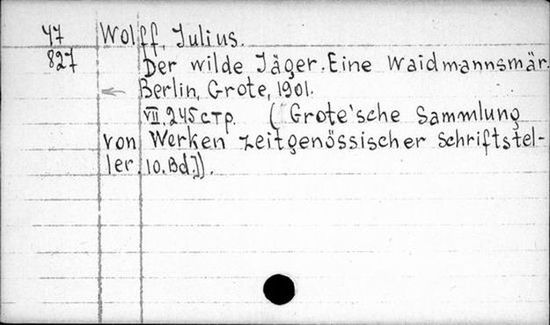 47 Wolff, Julius.
827 Der wilde Jäger. Eine Waidmannsmär.
Berlin, Grote, 1901.
VII, 245 стр. (Grote'sche Sammlung
von Werken zeitgenössischer Schriftstel-
ler. 10. Bd.]).